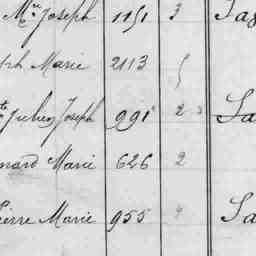 Mie Joseph 1151 3 Sa
ph Marie 2113 5
te Julien Joseph 991 2 Sa
nard Marie 626 2
ierre Marie 955 4 Sa